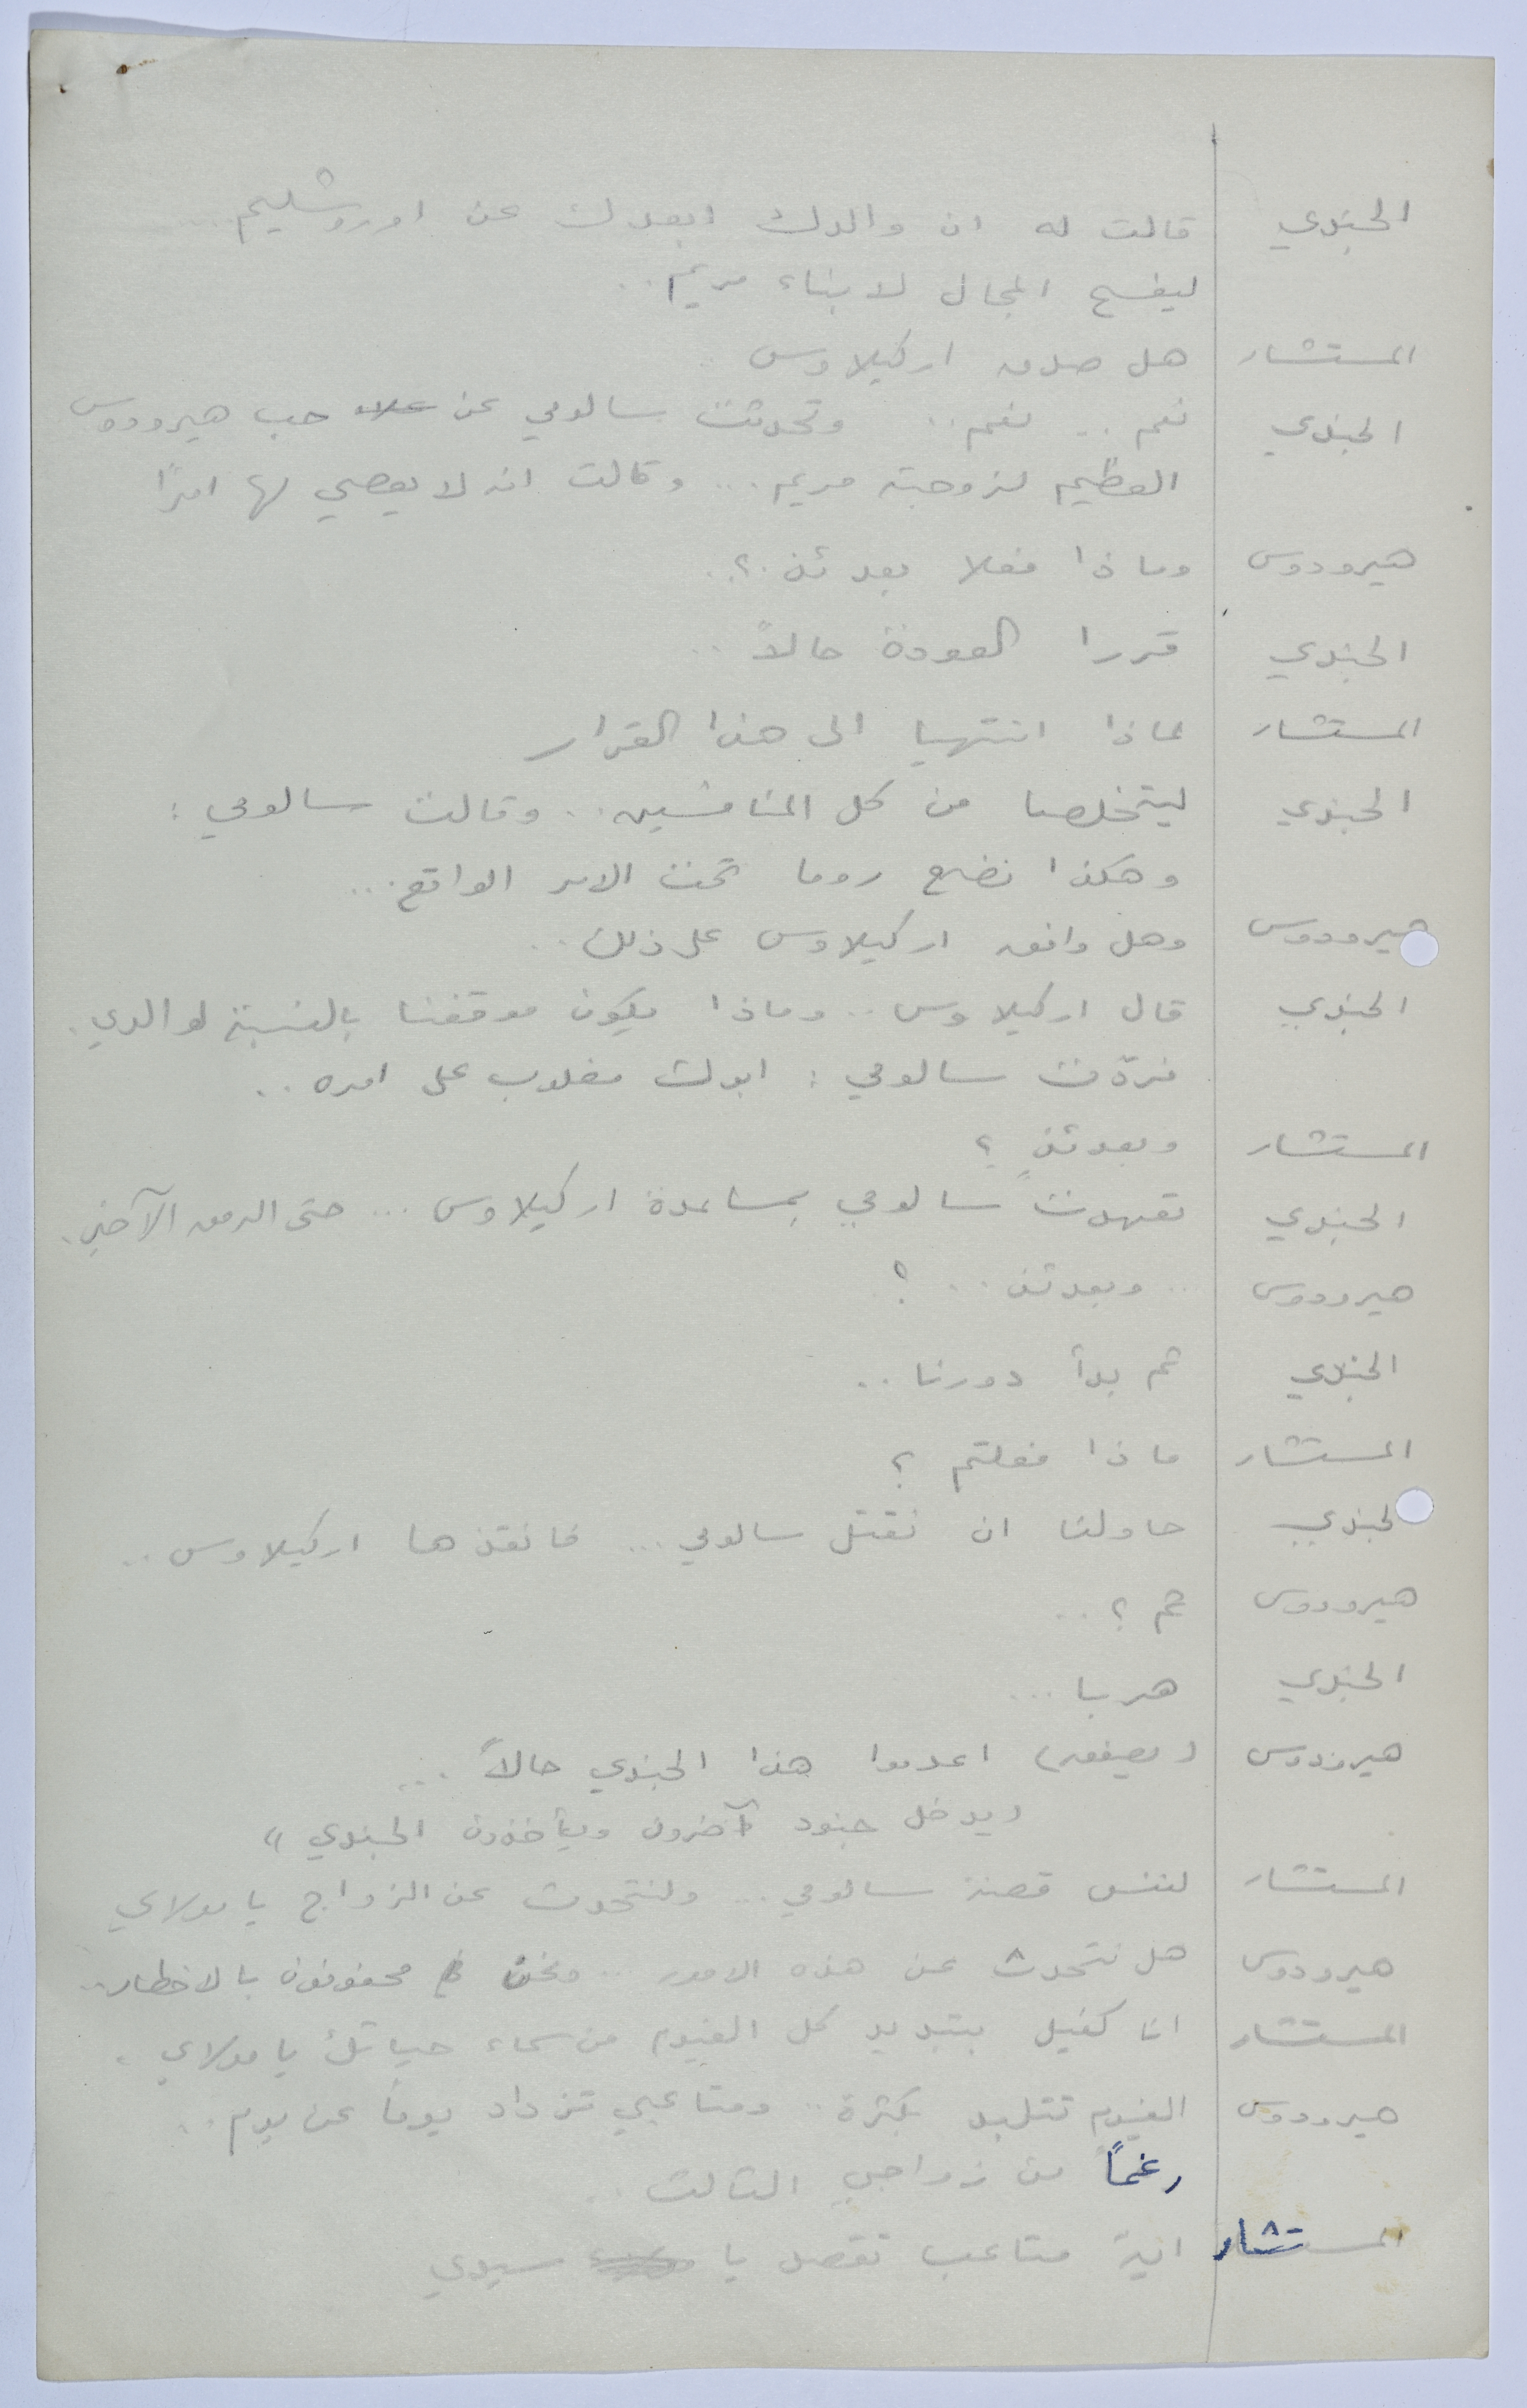 الجندي قالت له ان والدك ابعدك عن اورشليم ..
ليفسح المجال لابناء مريم ..
المستشار هل صدق اركيلاوس ..
الجندي نعم .. نعم .. وتحدثت سالومي عن حب هيرودوس
العظيم لزوجته مريم ... وقالت انه لا يعصي لها امرًا
هيرودوس وماذا فعلا بعدئذ ؟..
الجندي قررا العودة حالاً ..
المستشار لماذا انتهيا الى هذا القرار
الجندي ليتخلصا من كل المنافسين .. وقالت سالومي :
وهكذا نضع روما تحت الامر الواقع ...
هيرودوس وهل وافق اركيلاوس على ذلك ..
الجندي قال اركيلاوس .. وماذا يكون موقفنا بالنسبة لوالدي .
فردّت سالومي : ابوك مغلوب على امره ..
المستشار وبعدئذٍ ؟
الجندي تعهدت سالومي بمساعدة اركيلاوس ... حتى الرمق الآخير .
هيرودوس .. وبعدئذ .. ؟
الجندي ثم بدأ دورنا ..
المستشار ماذا فعلتم ؟
الجندي حاولنا ان نقتل سالومي ... فانقذها اركيلاوس ..
هيرودوس ثم ؟ ..
الجندي هربا ...
هيرودوس (يصفق) اعدموا هذا الجندي حالاً ...
(يدخل جنود آخرون ويأخذون الجندي)
المستشار لننس قصة سالومي ... ولنتحدث عن الزواج يا مولاي
هيرودوس هل نتحدث عن هذه الامور ... ونحن محفوفون بالاخطار ..
المستشار انا كفيل بتبديد كل الغيوم من سماء حياتك يا مولاي .
هيرودوس الغيوم تتلبد بكثرة .. ومتاعبي تزداد يوماً عن يوم ..
رغماً من زواجي الثالث ..
المستشار اية متاعب تقصد يا سيدي